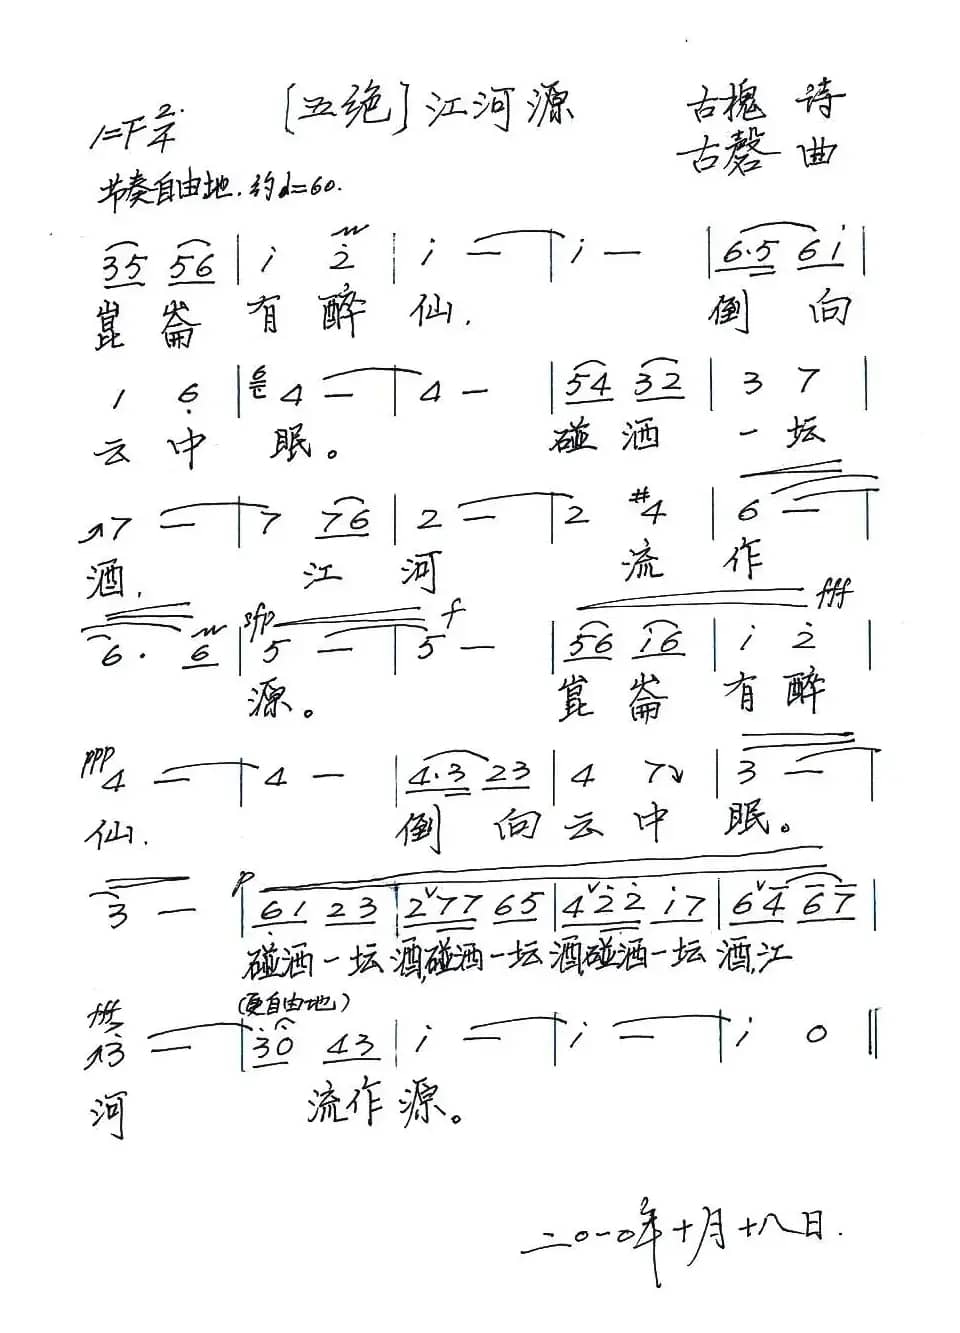 [五绝]江河源 古槐 诗
1=F 2/4 古磬 曲
节奏自由地.约d=60.
35 56 | i 2̇ | i — | i — | 6·5 6i |
崑崙有醉仙. 倒向
1 6̣ | 4 — | 4 — | 54 32 | 3 7
云中眠。 碰酒一坛
↗7 — | 7 76 | 2 — | 2 #4 | 6 — |
酒. 江河 流作
6· 6 | sfp 5 — | f 5 — | 56 i6 | i 2̇ | fff
源。 崑崙有醉
ppp 4 — | 4 — | 4·3 23 | 4 7↘ | 3 — |
仙. 倒向云中眠。
3 — | p 6̣1 23 | 2ˇ77 65 | 4ˇ2̇2̇ i7 | 6ˇ4 67 |
碰酒一坛酒,碰酒一坛酒,碰酒一坛酒,江
(更自由地)
fff ↗3̇ — | 3̇0 43 | i — | i — | i 0 ‖
河 流作源。
二〇一〇年十月十八日.